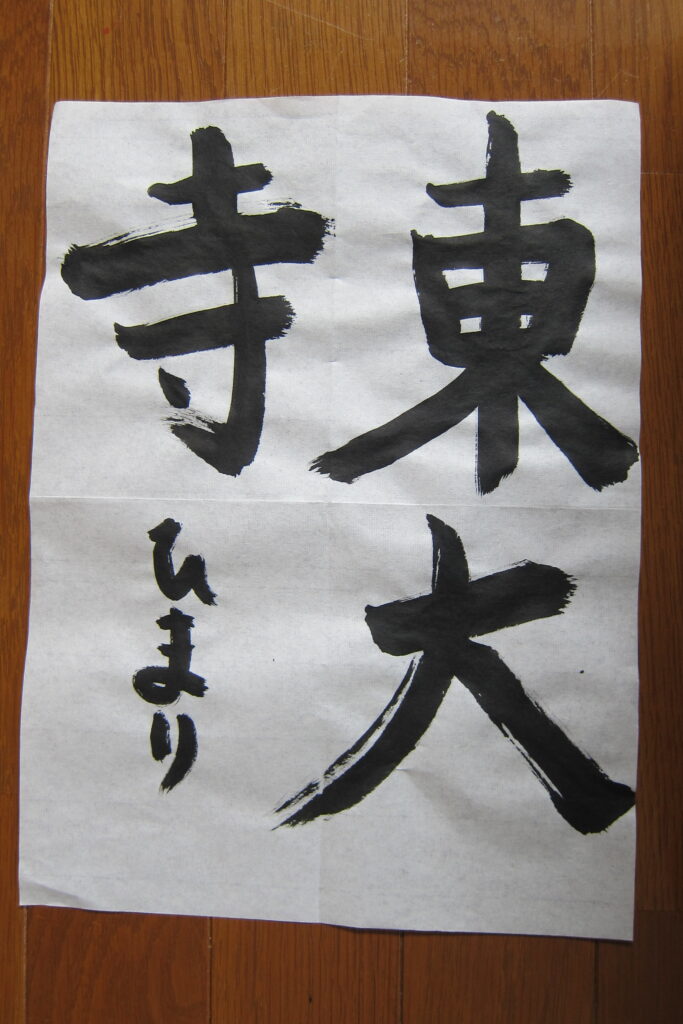 東大
寺
ひまり